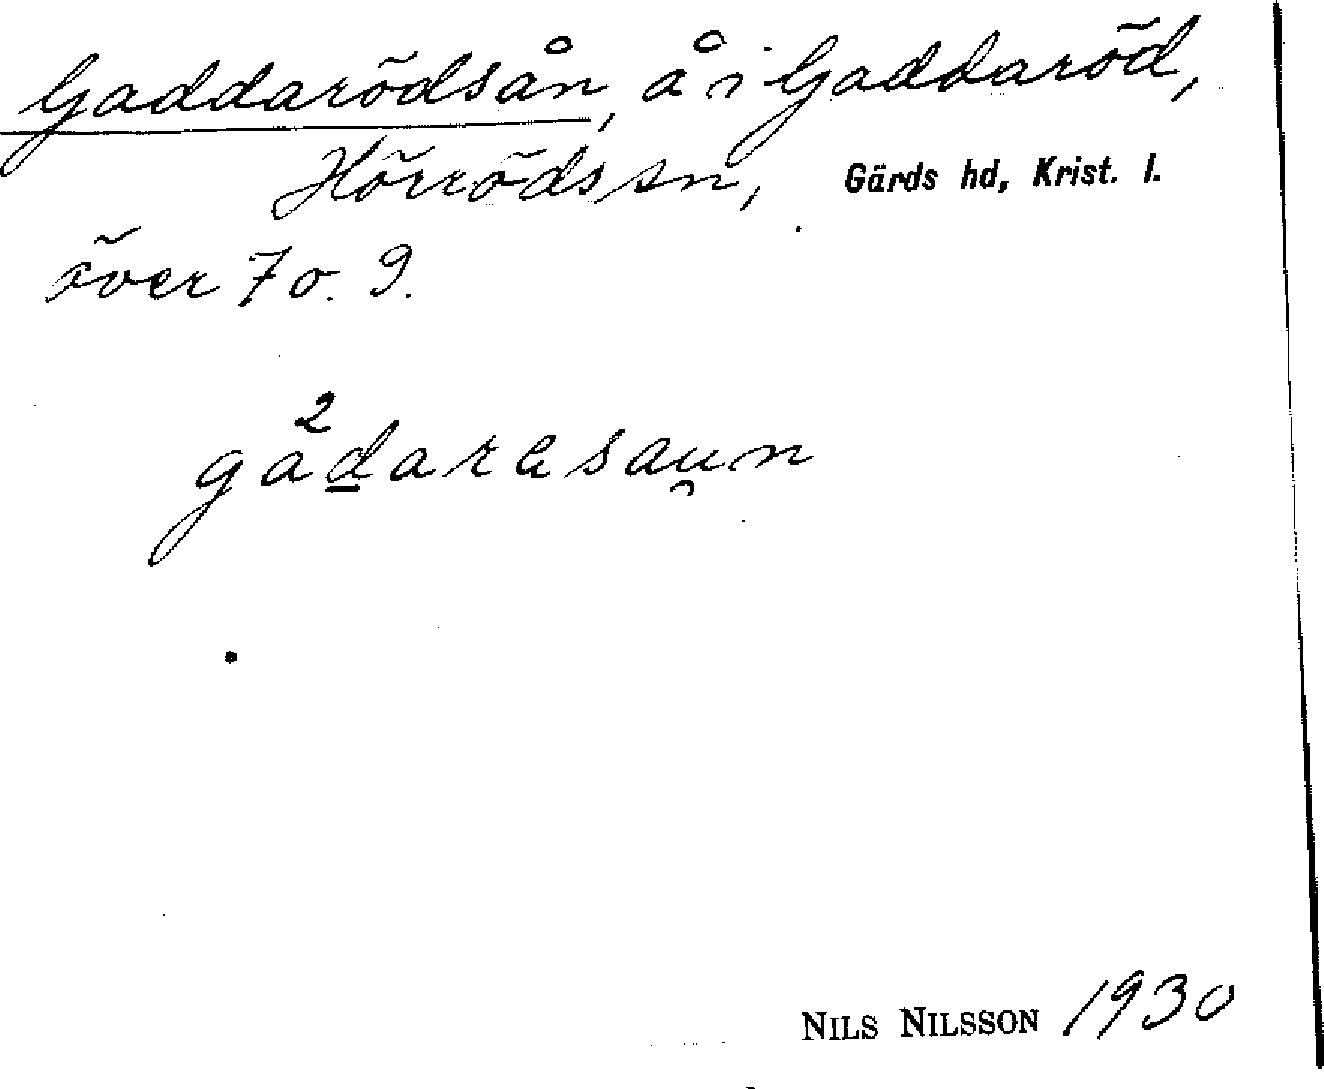 Gaddarödsån, å i Gaddaröd,
Hörröds sn, Gärds hd, Krist. l.
över 7 o. 9.
ga²d̲arɑsau̯n
NILS NILSSON 1930